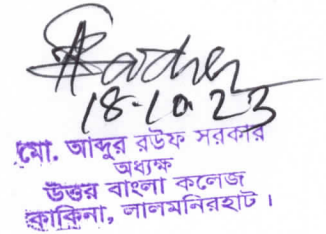 18-10-23
মো. আব্দুর রউফ সরকার
অধ্যক্ষ
উত্তর বাংলা কলেজ
কাকিনা, লালমনিরহাট।